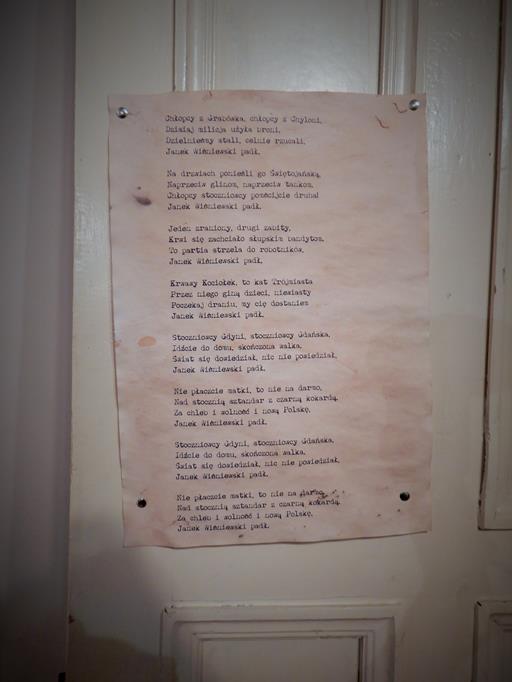 Chłopcy z Grabówka, chłopcy z Chyloni,
Dzisiaj milicja użyła broni,
Dzielnieśmy stali, celnie rzucali,
Janek Wiśniewski padł.
Na drzwiach ponieśli go Świętojańską,
Naprzeciw glinom, naprzeciw tankom,
Chłopcy stoczniowcy pomścijcie druha!
Janek Wiśniewski padł.
Jeden zraniony, drugi zabity,
Krwi się zachciało słupskim bandytom,
To partia strzela do robotników,
Janek Wiśniewski padł.
Krwawy Kociołek, to kat Trójmiasta
Przez niego giną dzieci, niewiasty
Poczekaj draniu, my cię dostaniem
Janek Wiśniewski padł.
Stoczniowcy Gdyni, stoczniowcy Gdańska,
Idźcie do domu, skończona walka,
Świat się dowiedział, nic nie powiedział,
Janek Wiśniewski padł.
Nie płaczcie matki, to nie na darmo,
Nad stocznią sztandar z czarną kokardą
Za chleb i wolność i nową Polskę,
Janek Wiśniewski padł.
Stoczniowcy Gdyni, stoczniowcy Gdańska,
Idźcie do domu, skończona walka,
Świat się dowiedział, nic nie powiedział,
Janek Wiśniewski padł.
Nie płaczcie matki, to nie na darmo,
Nad stocznią sztandar z czarną kokardą
Za chleb i wolność i nową Polskę,
Janek Wiśniewski padł.